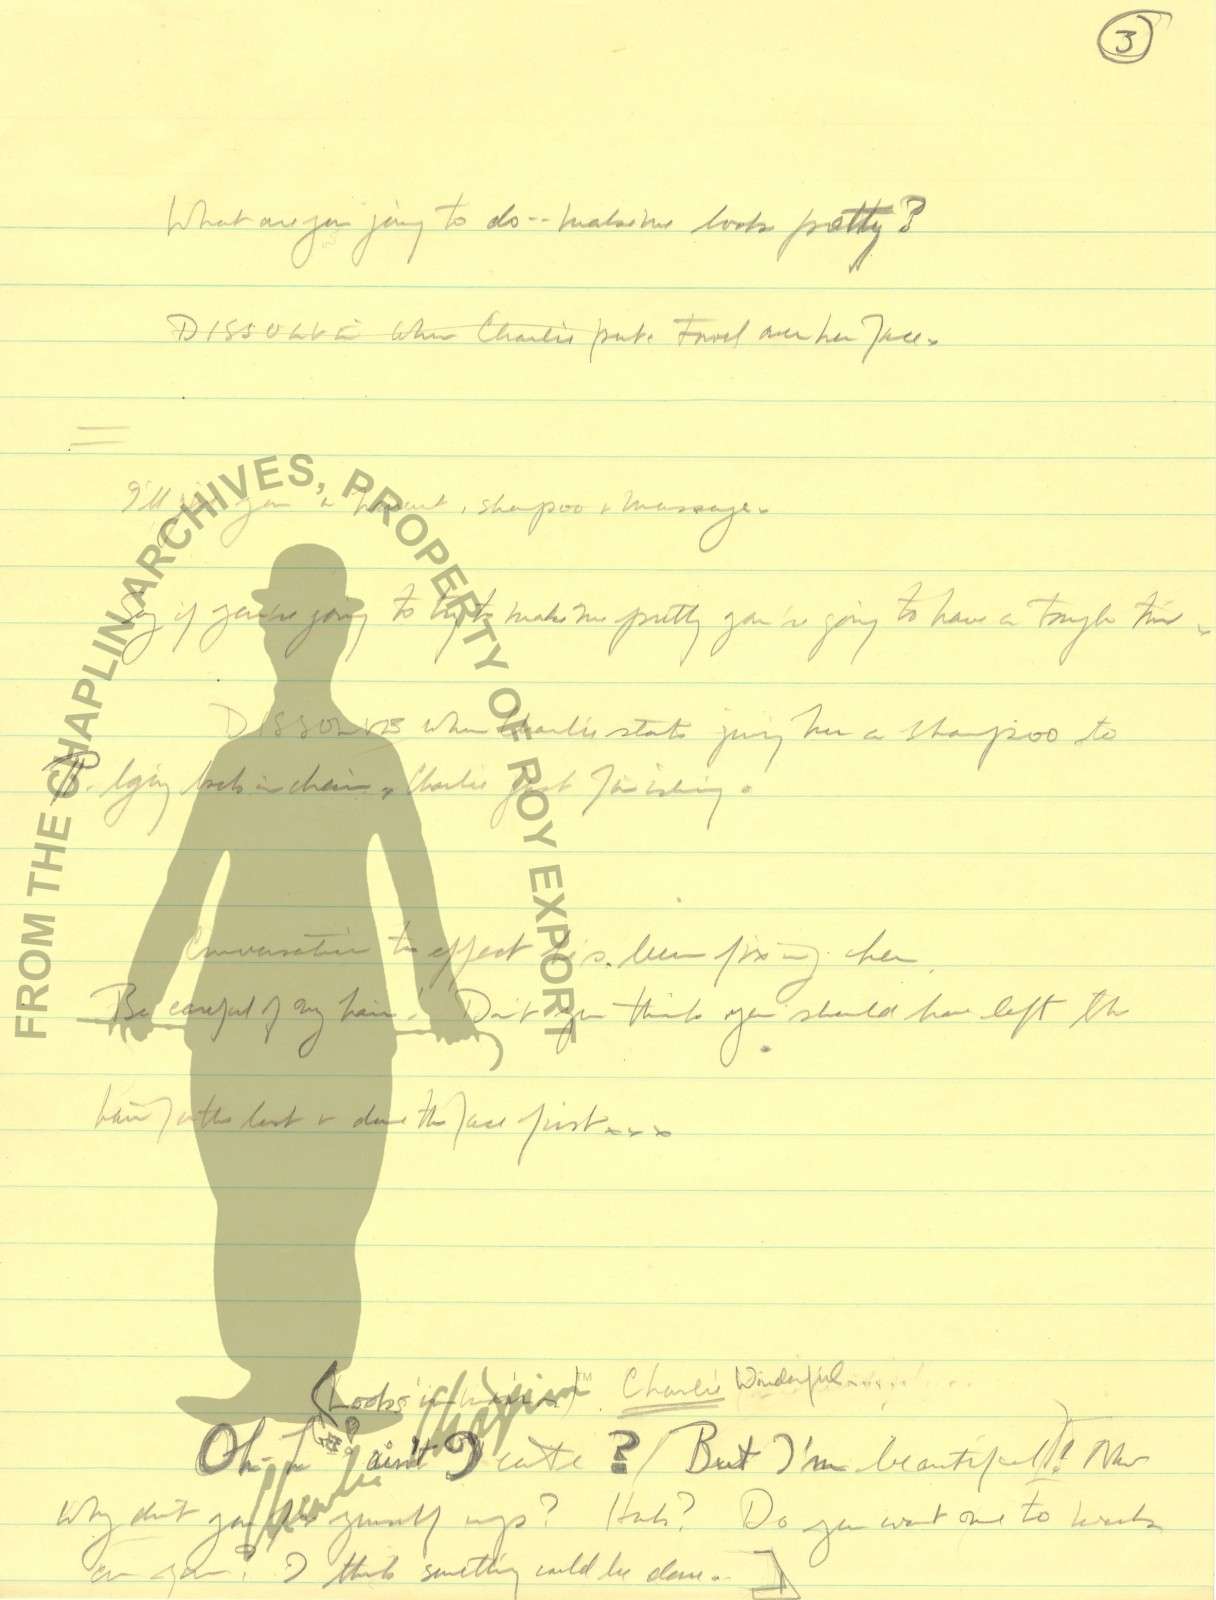 3
What are you going to do -- make me look pretty?
DISSOLVE when Charlie puts Towel over her face.
I'll give you a haircut, shampoo & massage.
Say if you're going to try to make me pretty you're going to have a tough time
DISSOLVES when Charlie starts giving her a shampoo to
P. lying back in chair, Charlie just finishing.
Conversation to effect he's been fixing her.
Be careful of my hair! Don't you think you should have left the
hair for the last & done the face first xxx
(Looks in mirror) Charlie Wonderful
Oh- ain't I cute? But I'm beautiful!! Now
Why don't you fix yourself up? Huh? Do you want me to work
on you? I think something could be done.
FROM THE CHAPLIN ARCHIVES, PROPERTY OF ROY EXPORT
Charlie Chaplin™